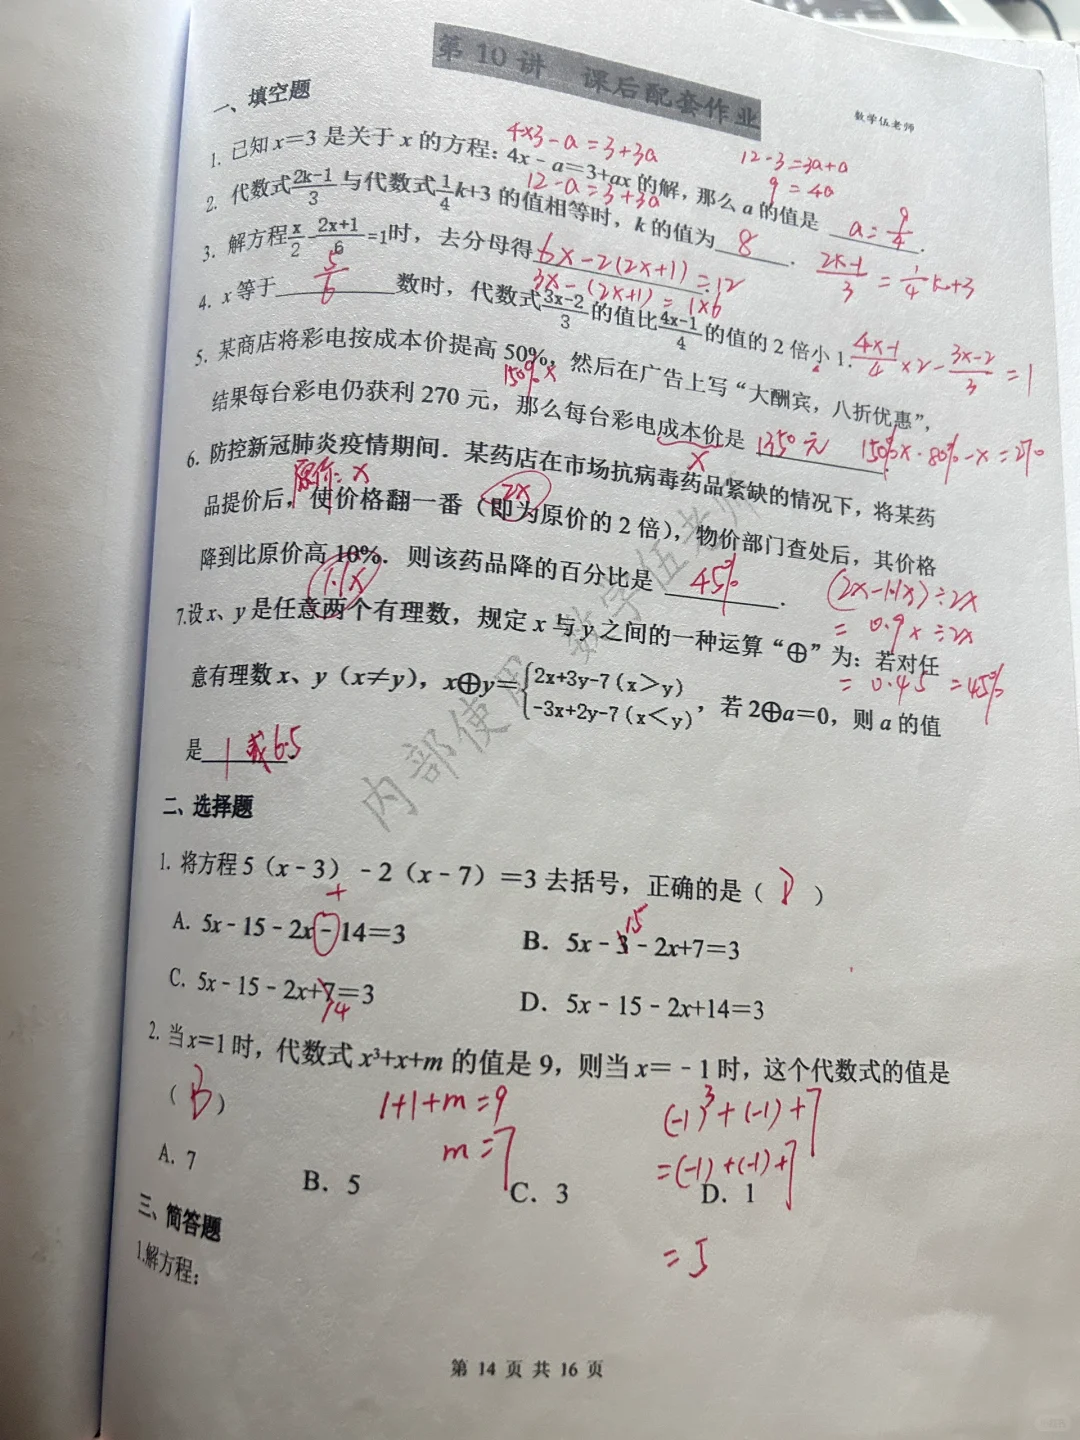 第 10 讲 课后配套作业
数学伍老师
一、填空题
4×3-a=3+3a
12-3=3a+a
1. 已知 x=3 是关于 x 的方程：4x﹣a=3+ax 的解，那么 a 的值是 a=9/4.
12-a=3+3a
9=4a
2. 代数式(2k-1)/3与代数式1/4k+3 的值相等时，k 的值为 8.
(2k-1)/3=1/4k+3
3. 解方程x/2-(2x+1)/6=1时，去分母得6x-2(2x+1)=12
3x-(2x+1)=1×6
4. x 等于 5/6 数时，代数式(3x-2)/3的值比(4x-1)/4的值的 2 倍小 1.
(4x-1)/4×2-(3x-2)/3=1
5. 某商店将彩电按成本价提高 50%，然后在广告上写“大酬宾，八折优惠”，
150%x
结果每台彩电仍获利 270 元，那么每台彩电成本价是 1350元.
x
150%x·80%-x=270
6. 防控新冠肺炎疫情期间．某药店在市场抗病毒药品紧缺的情况下，将某药
原价：x
2x
品提价后，使价格翻一番（即为原价的 2 倍），物价部门查处后，其价格
降到比原价高 10%．则该药品降的百分比是 45%.
1.1x
(2x-1.1x)÷2x
=0.9x÷2x
=0.45=45%
7.设 x、y 是任意两个有理数，规定 x 与 y 之间的一种运算“⊕”为：若对任
意有理数 x、y（x≠y），x⊕y={2x+3y-7(x＞y)
-3x+2y-7(x＜y)，若 2⊕a=0，则 a 的值
是 1或6.5
内部使用 数学伍老师
二、选择题
1. 将方程 5（x﹣3）﹣2（x﹣7）=3 去括号，正确的是（ D ）
+
15
A. 5x﹣15﹣2x﹣14=3
B. 5x﹣3﹣2x+7=3
C. 5x﹣15﹣2x+7=3
14
D. 5x﹣15﹣2x+14=3
2. 当 x=1 时，代数式 x³+x+m 的值是 9，则当 x=﹣1 时，这个代数式的值是
（ B ）
1+1+m=9
(-1)³+(-1)+7
m=7
=(-1)+(-1)+7
A. 7
B. 5
C. 3
D. 1
=5
三、简答题
1.解方程：
第 14 页 共 16 页